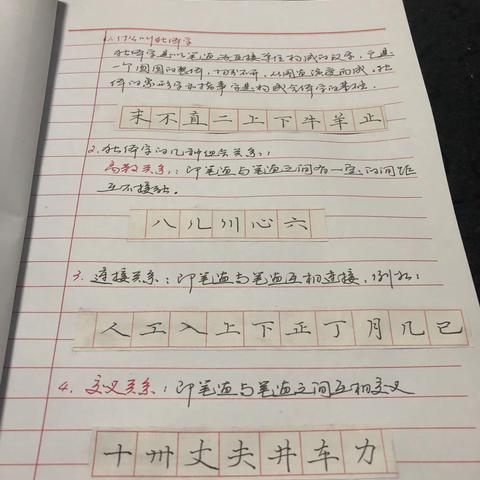 1.什么叫独体字
独体字是以笔画为直接单位构成的汉字，它是
一个囫囵的整体，切分不开，从图画演变而成。独
体的象形字和指事字是构成合体字的基础．
末不直二上下牛羊止
2.独体字的几种组合关系：
离散关系：即笔画与笔画之间有一定的间距
互不接触．
八儿川心六
3.连接关系：即笔画与笔画互相连接，例如：
人工入上下正丁月几已
4.交叉关系：即笔画与笔画之间互相交叉
十卅丈夫井车力